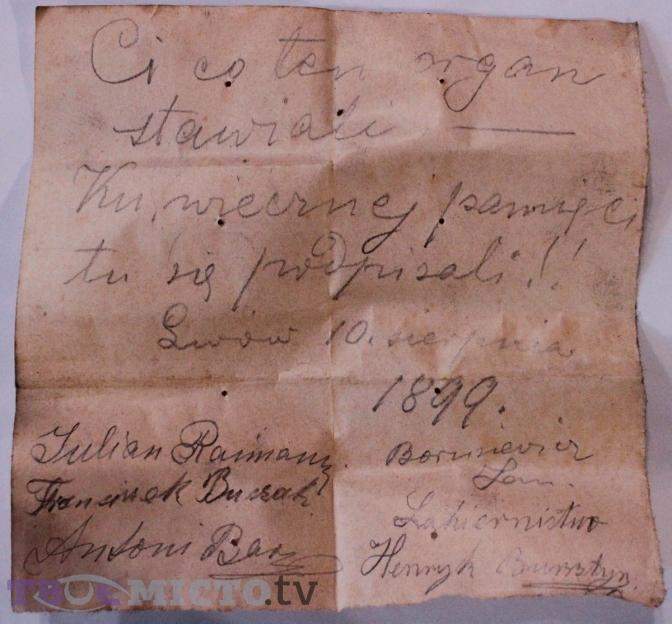 Ci co ten organ
stawiali —
Ku wiecznej pamięci
tu się podpisali!!
Lwów 10. sierpnia
1899.
Julian Raimany
Franciszek
Antoni Bar
Borusiewicz
Jan.
Lakiernictwo
Henryk Bursztyn
TBOE MICTO.tv